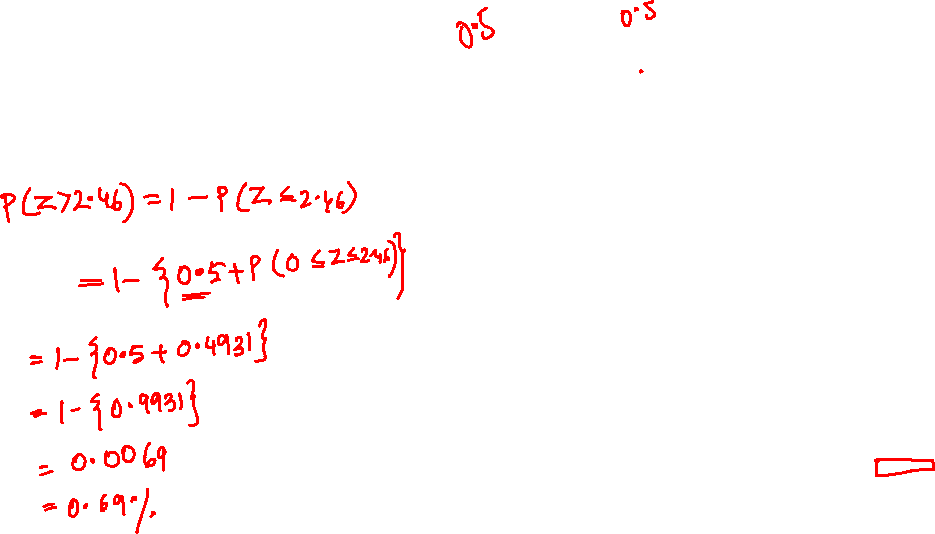 0.5 0.5
P(Z>2.46) = 1 - P(Z ≤ 2.46)
= 1 - {0.5 + P(0 ≤ Z ≤ 2.46)}
= 1 - {0.5 + 0.4931}
= 1 - {0.9931}
= 0.0069
= 0.69%